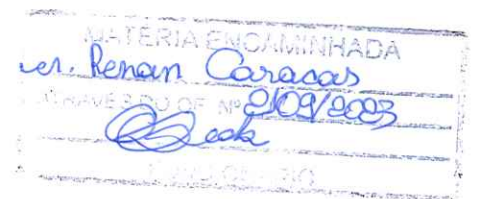 MATÉRIA ENCAMINHADA
ver. Renan Caracas
ATRAVÉS DO OF. Nº 2109/2023